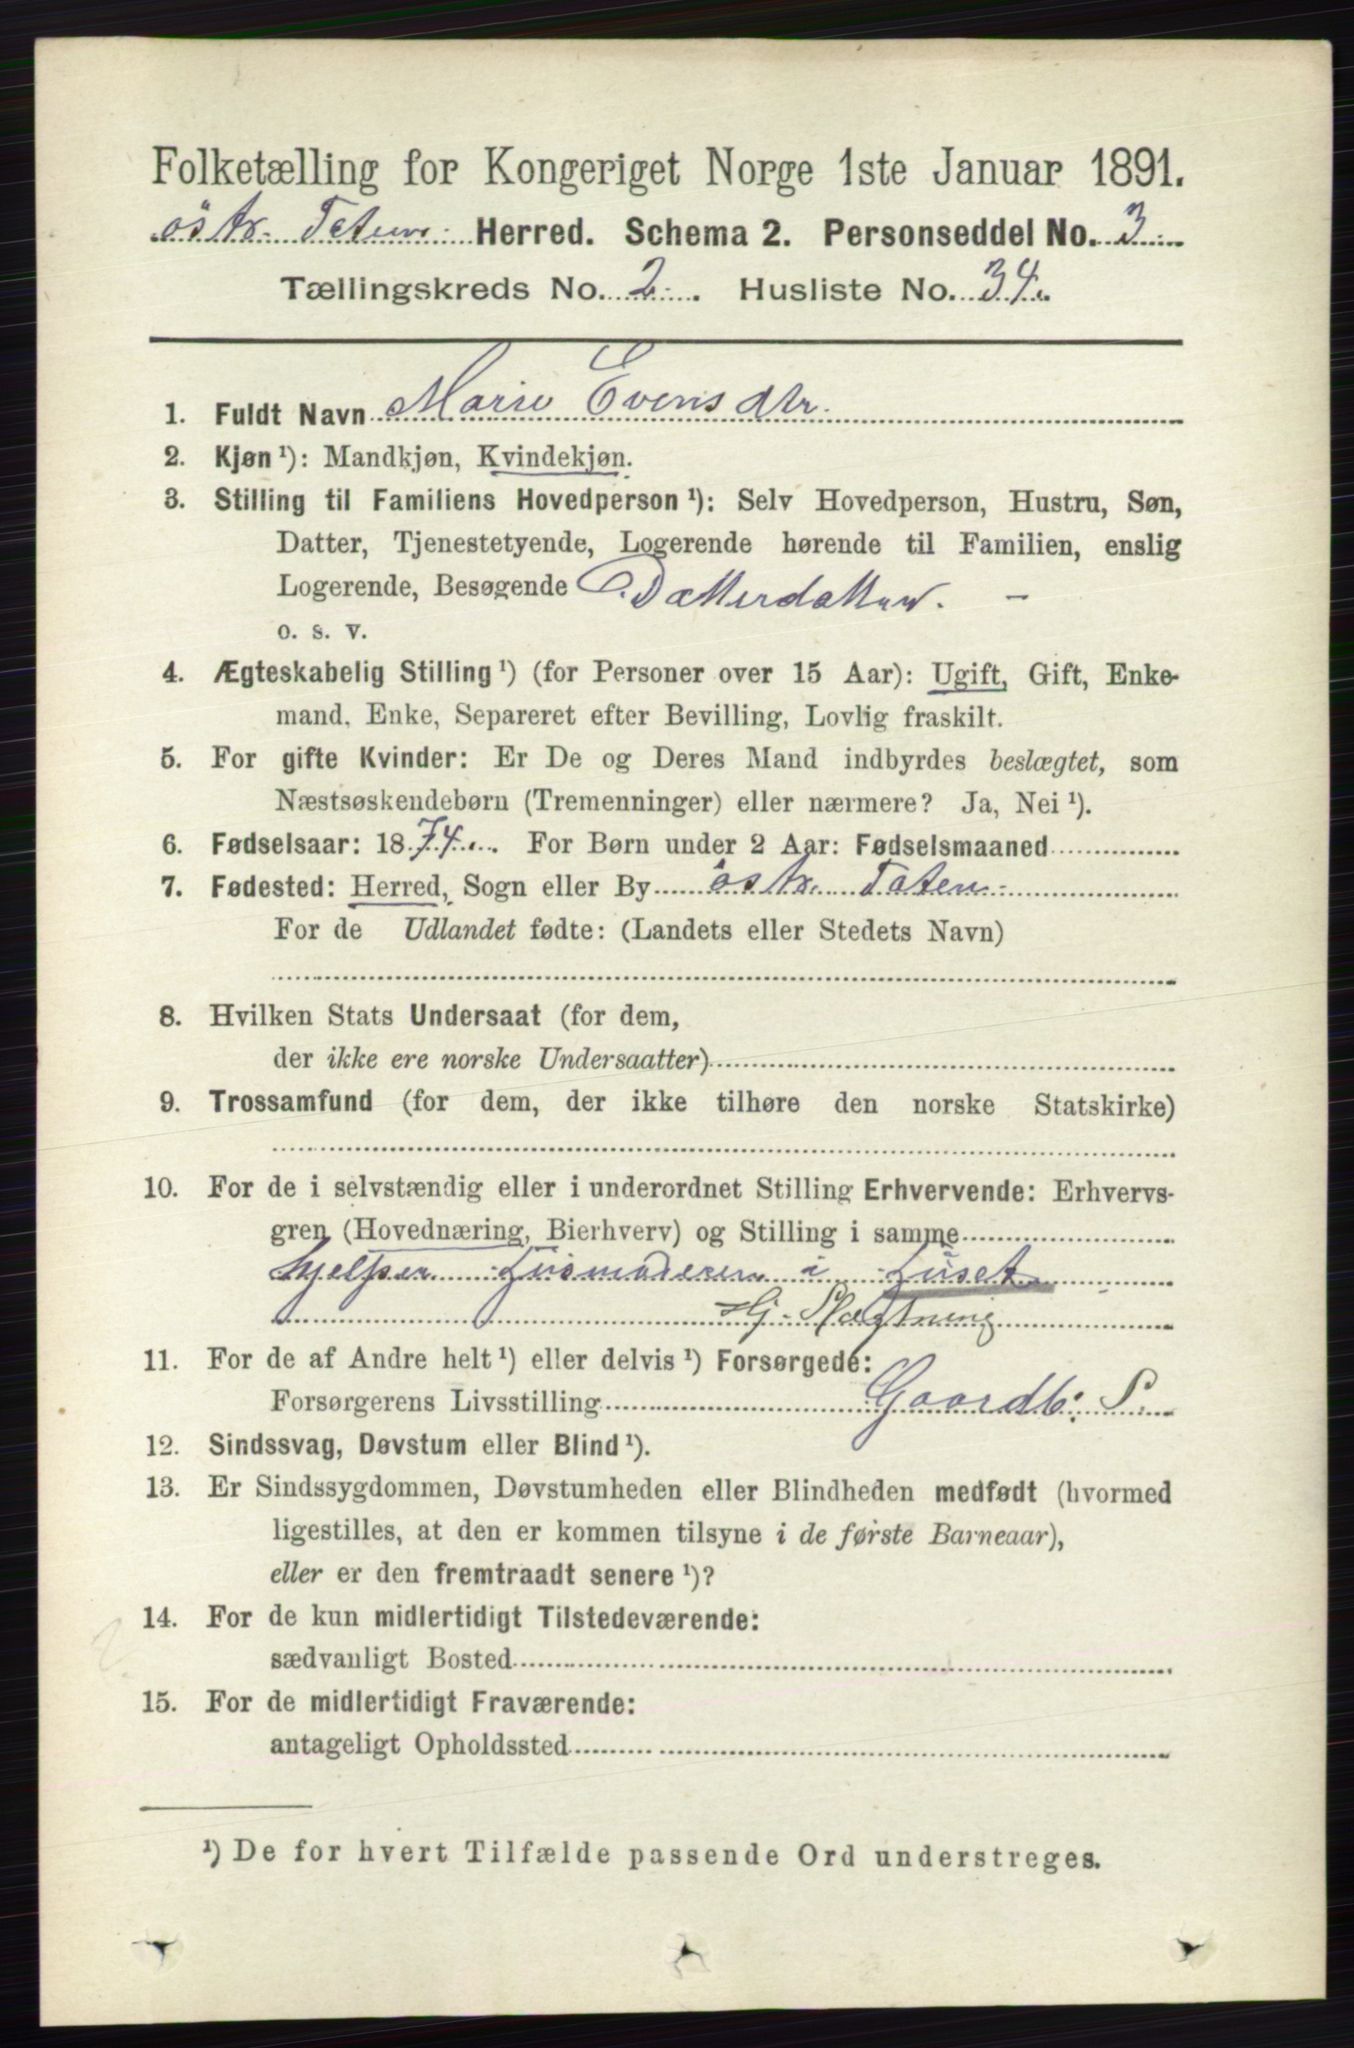 Folketælling for Kongeriget Norge 1ste Januar 1891.
östr. Toten Herred. Schema 2. Personseddel No. 3
Tællingskreds No. 2. Husliste No. 34.
1. Fuldt Navn Marie Evensdtr.
2. Kjøn ¹): Mandkjøn, Kvindekjøn.
3. Stilling til Familiens Hovedperson ¹): Selv Hovedperson, Hustru, Søn,
Datter, Tjenestetyende, Logerende hørende til Familien, enslig
Logerende, Besøgende Datterdatter. –
o. s. v.
4. Ægteskabelig Stilling ¹) (for Personer over 15 Aar): Ugift, Gift, Enke-
mand, Enke, Separeret efter Bevilling, Lovlig fraskilt.
5. For gifte Kvinder: Er De og Deres Mand indbyrdes beslægtet, som
Næstsøskendebørn (Tremenninger) eller nærmere? Ja, Nei ¹).
6. Fødselsaar: 1874. For Børn under 2 Aar: Fødselsmaaned
7. Fødested: Herred, Sogn eller By östr. Toten
For de Udlandet fødte: (Landets eller Stedets Navn)
8. Hvilken Stats Undersaat (for dem,
der ikke ere norske Undersaatter)
9. Trossamfund (for dem, der ikke tilhøre den norske Statskirke)
10. For de i selvstændig eller i underordnet Stilling Erhvervende: Erhvervs-
gren (Hovednæring, Bierhverv) og Stilling i samme
hjelper Husmoderen i Huset
Hj. Slægtning
11. For de af Andre helt ¹) eller delvis ¹) Forsørgede:
Forsørgerens Livsstilling Gaardb: S.
12. Sindssvag, Døvstum eller Blind ¹).
13. Er Sindssygdommen, Døvstumheden eller Blindheden medfødt (hvormed
ligestilles, at den er kommen tilsyne i de første Barneaar),
eller er den fremtraadt senere ¹)?
14. For de kun midlertidigt Tilstedeværende:
sædvanligt Bosted
15. For de midlertidigt Fraværende:
antageligt Opholdssted
¹) De for hvert Tilfælde passende Ord understreges.